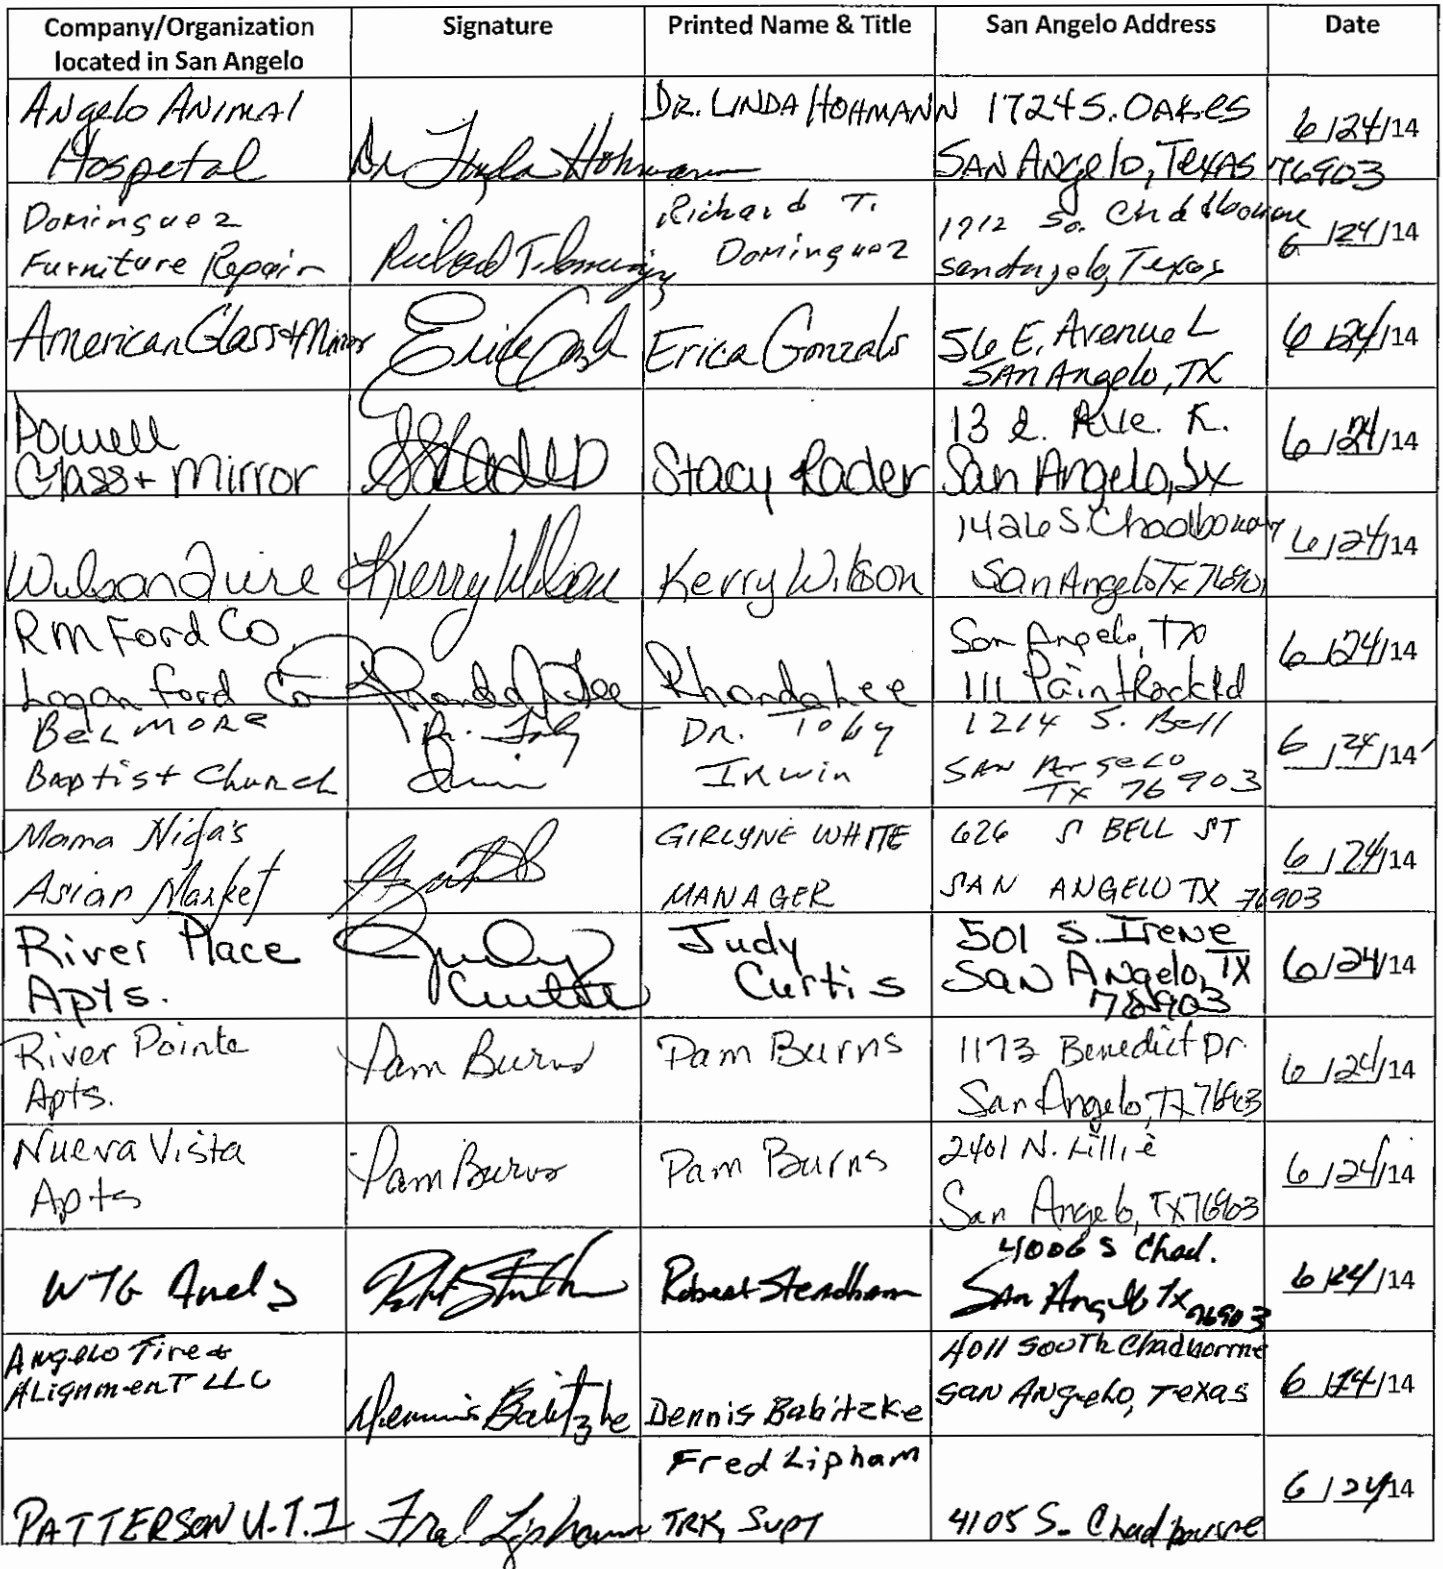 Company/Organization located in San Angelo | Signature | Printed Name & Title | San Angelo Address | Date
Angelo Animal Hospetal | Dr Linda Hohmann | Dr. Linda Hohmann | 1724 S. Oakes San Angelo, Texas 76903 | 6/24/14
Dominguez Furniture Repair | Richard T. Dominguez | Richard T. Dominguez | 1912 So. Chadbourne San Angelo, Texas | 6/24/14
American Glass + Mirror | | Erica Gonzals | 56 E. Avenue L San Angelo, TX | 6/24/14
Powell Glass + Mirror | | Stacy Rader | 13 E. Ave. K. San Angelo, Tx | 6/24/14
Wilson Tire | Kerry Wilson | Kerry Wilson | 1426 S. Chadbourne San Angelo Tx 76901 | 6/24/14
RM Ford Co Logan Ford Co | Rhonda Lee | Rhonda Lee | San Angelo, TX 111 Paint Rock Rd | 6/24/14
Belmore Baptist Church | Dr. Toby Irwin | Dr. Toby Irwin | 1214 S. Bell San Angelo TX 76903 | 6/24/14
Mama Nida's Asian Market | | GIRLYNE WHITE MANAGER | 626 S BELL ST SAN ANGELO TX 76903 | 6/24/14
River Place Apts. | Judy Curtis | Judy Curtis | 501 S. Irene San Angelo, TX 76903 | 6/24/14
River Pointe Apts. | Pam Burns | Pam Burns | 1173 Benedict Dr. San Angelo, Tx 76903 | 6/24/14
Nueva Vista Apts | Pam Burns | Pam Burns | 2401 N. Lillie San Angelo, Tx 76903 | 6/24/14
WTG Fuels | | Robert Stendham | 4006 S Chad. San Angelo Tx 76903 | 6/24/14
Angelo Tire & Alignment LLC | Dennis Babitzke | Dennis Babitzke | 4011 South Chadborrne San Angelo, Texas | 6/24/14
PATTERSON U.T.I | Fred Lipham | Fred Lipham TRK, SUPT | 4105 S. Chadbourne | 6/24/14